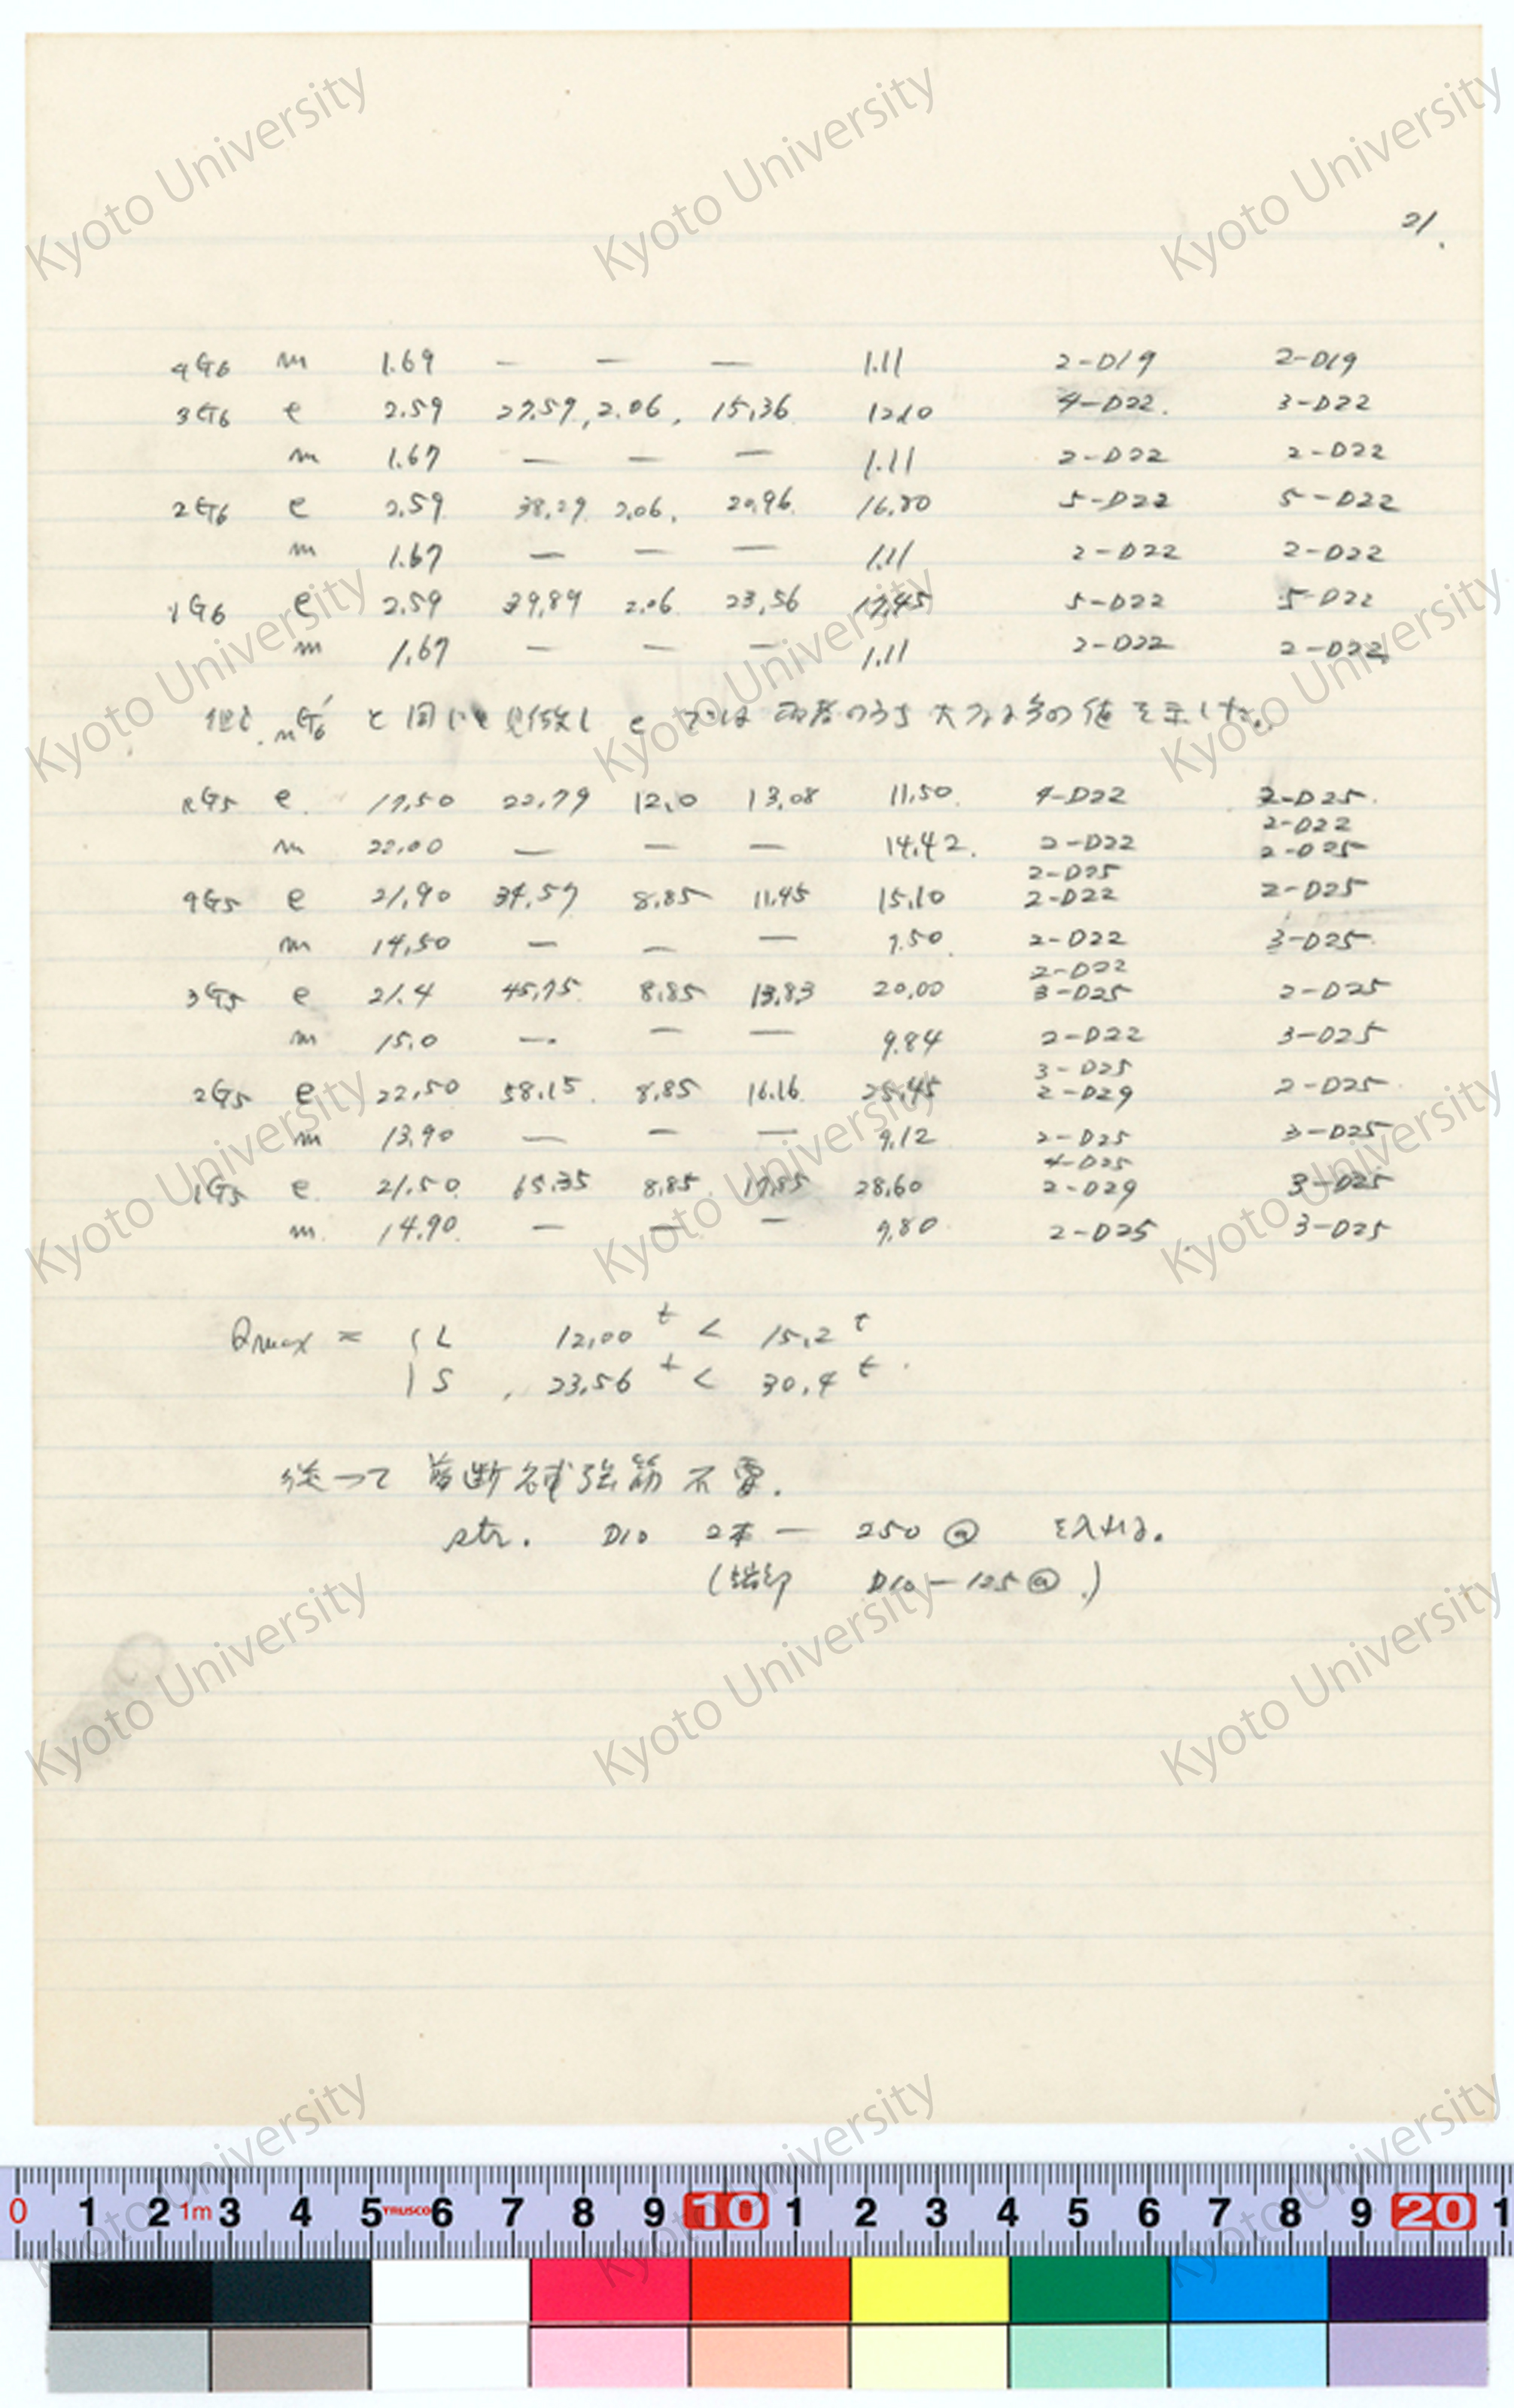 21.
4G6 m 1.69 — — — 1.11 2-D19 2-D19
3G6 e 2.59 27.59, 2.06, 15.36 12.10 4-D22. 3-D22
m 1.67 — — — 1.11 2-D22 2-D22
2G6 e 2.59 38.29 2.06, 20.96 16.80 5-D22 5-D22
m 1.67 — — — 1.11 2-D22 2-D22
1G6 e 2.59 39.89 2.06 23.56 17.45 5-D22 5-D22
m 1.67 — — — 1.11 2-D22 2-D22
但し nG6' と同じと見做し e では両者のうち大なる多の値を示した。
RG5 e 17.50 22.79 12.0 13.08 11.50 4-D22 2-D25
2-D22
m 22.00 — — — 14.42 2-D22 2-D25
2-D25
4G5 e 21.90 34.57 8.85 11.45 15.10 2-D22 2-D25
m 14.50 — — — 9.50 2-D22 3-D25
2-D22
3G5 e 21.4 45.75 8.85 13.83 20.00 3-D25 2-D25
m 15.0 — — — 9.84 2-D22 3-D25
3-D25
2G5 e 22.50 58.15 8.85 16.16 25.45 2-D29 2-D25
m 13.90 — — — 9.12 2-D25 3-D25
4-D25
1G5 e 21.50 65.35 8.85 17.85 28.60 2-D29 3-D25
m 14.90 — — — 9.80 2-D25 3-D25
Qmax = { L 12.00 t < 15.2 t
S 23.56 t < 30.4 t
従って 剪断補強筋不要.
str. D10 2本 — 250 @ を入れる。
(端部 D10—125 @)
Kyoto University
0 1 2 1m 3 4 5 TRUSCO 6 7 8 9 10 1 2 3 4 5 6 7 8 9 20 1